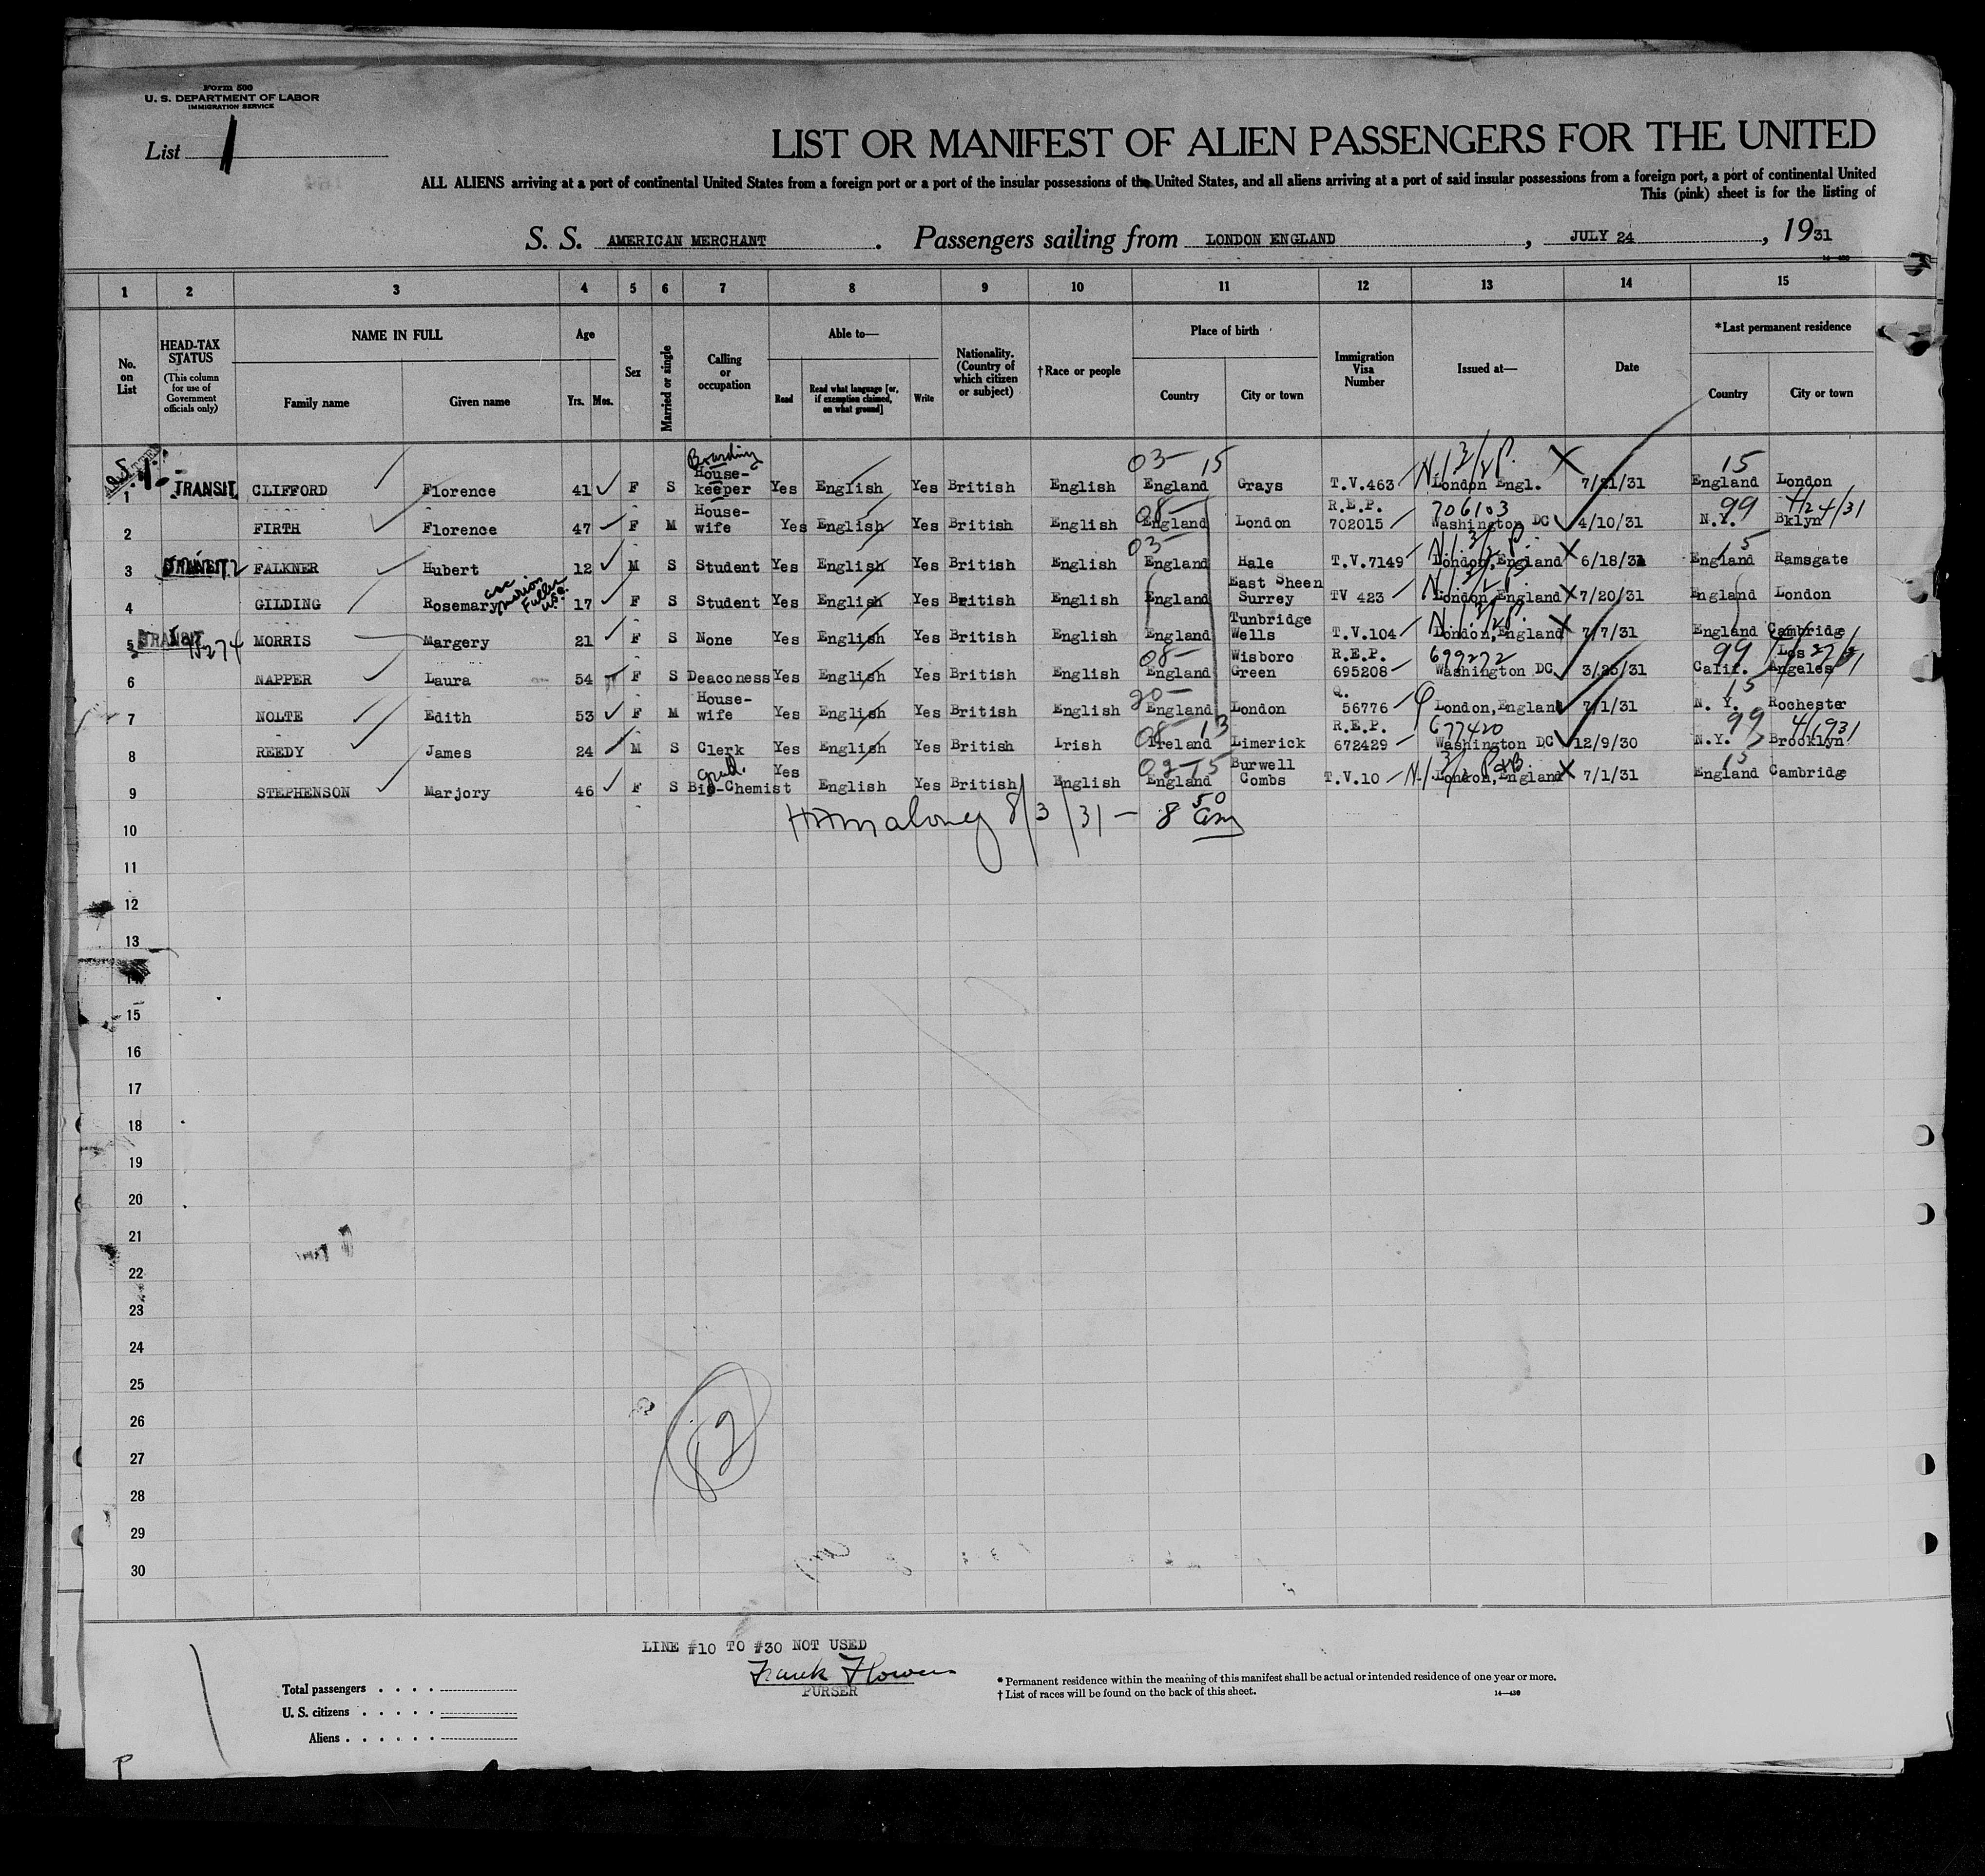 Form 500
U. S. DEPARTMENT OF LABOR
IMMIGRATION SERVICE
List 1
LIST OR MANIFEST OF ALIEN PASSENGERS FOR THE UNITED
ALL ALIENS arriving at a port of continental United States from a foreign port or a port of the insular possessions of the United States, and all aliens arriving at a port of said insular possessions from a foreign port, a port of continental United
This (pink) sheet is for the listing of
S. S. AMERICAN MERCHANT . Passengers sailing from LONDON ENGLAND , JULY 24 , 1931
1 2 3 4 5 6 7 8 9 10 11 12 13 14 15
No. on List
HEAD-TAX STATUS (This column for use of Government officials only)
NAME IN FULL
Family name Given name
Age
Yrs. Mos.
Sex
Married or single
Calling or occupation
Able to—
Read Read what language [or, if exemption claimed, on what ground] Write
Nationality. (Country of which citizen or subject)
†Race or people
Place of birth
Country City or town
Immigration Visa Number
Issued at—
Date
*Last permanent residence
Country City or town
1 TRANSIT CLIFFORD Florence 41 F S Boarding House-keeper Yes English Yes British English 03- 15 England Grays T.V.463 London Engl. 7/21/31 15 England London
2 FIRTH Florence 47 F M House-wife Yes English Yes British English 08- England London R.E.P. 702015 706103 Washington DC 4/10/31 99 N.Y. Bklyn 4/24/31
3 TRANSIT FALKNER Hubert 12 M S Student Yes English Yes British English 03- England Hale T.V.7149 London,England 6/18/31 15 England Ramsgate
4 GILDING Rosemary Marion Fuller 17 F S Student Yes English Yes British English England East Sheen Surrey TV 423 London,England 7/20/31 England London
5 TRANSIT MORRIS Margery 21 F S None Yes English Yes British English England Tunbridge Wells T.V.104 London,England 7/7/31 England Cambridge
6 NAPPER Laura 54 F S Deaconess Yes English Yes British English 08- England Wisboro Green R.E.P. 695208 699272 Washington DC 3/25/31 99 Calif. Los Angeles
7 NOLTE Edith 53 F M House-wife Yes English Yes British English 20- England London Q. 56776 London,England 7/1/31 15 N. Y. Rochester
8 REEDY James 24 M S Clerk Yes English Yes British Irish 08 13 Ireland Limerick R.E.P. 672429 677420 Washington DC 12/9/30 99 N.Y. Brooklyn
9 STEPHENSON Marjory 46 F S Bio-Chemist Yes English Yes British English England Burwell Combs T.V.10 London,England 7/1/31 15 England Cambridge
10 8/3/31 - 8 50
11
12
13
14
15
16
17
18
19
20
21
22
23
24
25
26
27
28
29
30
LINE #10 TO #30 NOT USED
Frank Flowers
PURSER
Total passengers . . . .
U. S. citizens . . . . .
Aliens . . . . . .
* Permanent residence within the meaning of this manifest shall be actual or intended residence of one year or more.
† List of races will be found on the back of this sheet.